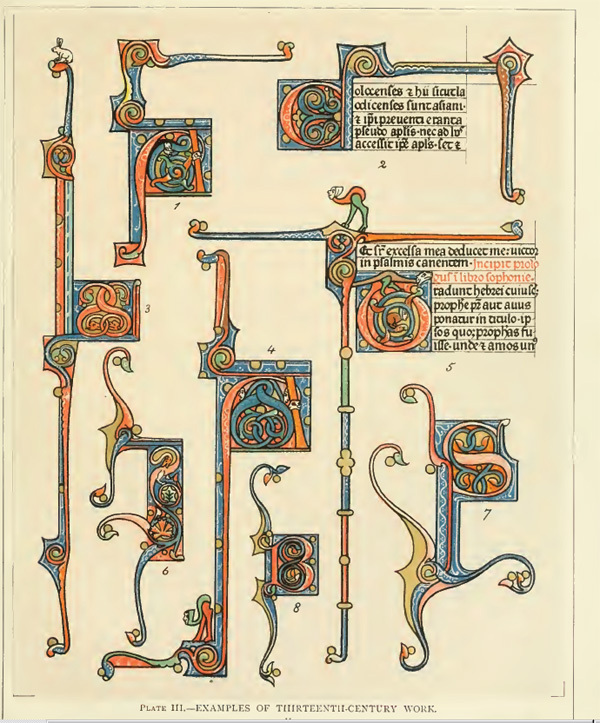 Colocenses ⁊ hii sicut la
odicenses sunt asiani·
⁊ ip̄i preventi erant a
pseudo apl̄is· nec ad
accessit ip̄e apl̄s· set ⁊
1
2
Et sr̄ excelsa mea deducet me: victor
in psalmis canentem· Incipit prolo
gus ī libro sophonie·
Tradunt hebrei cuius
prophe pr̄ aut auus
ponatur in titulo· ip
sos quoq; prophas fu
isse· unde ⁊ amos
3
4
5
6
7
8
Plate III.—EXAMPLES OF THIRTEENTH-CENTURY WORK.